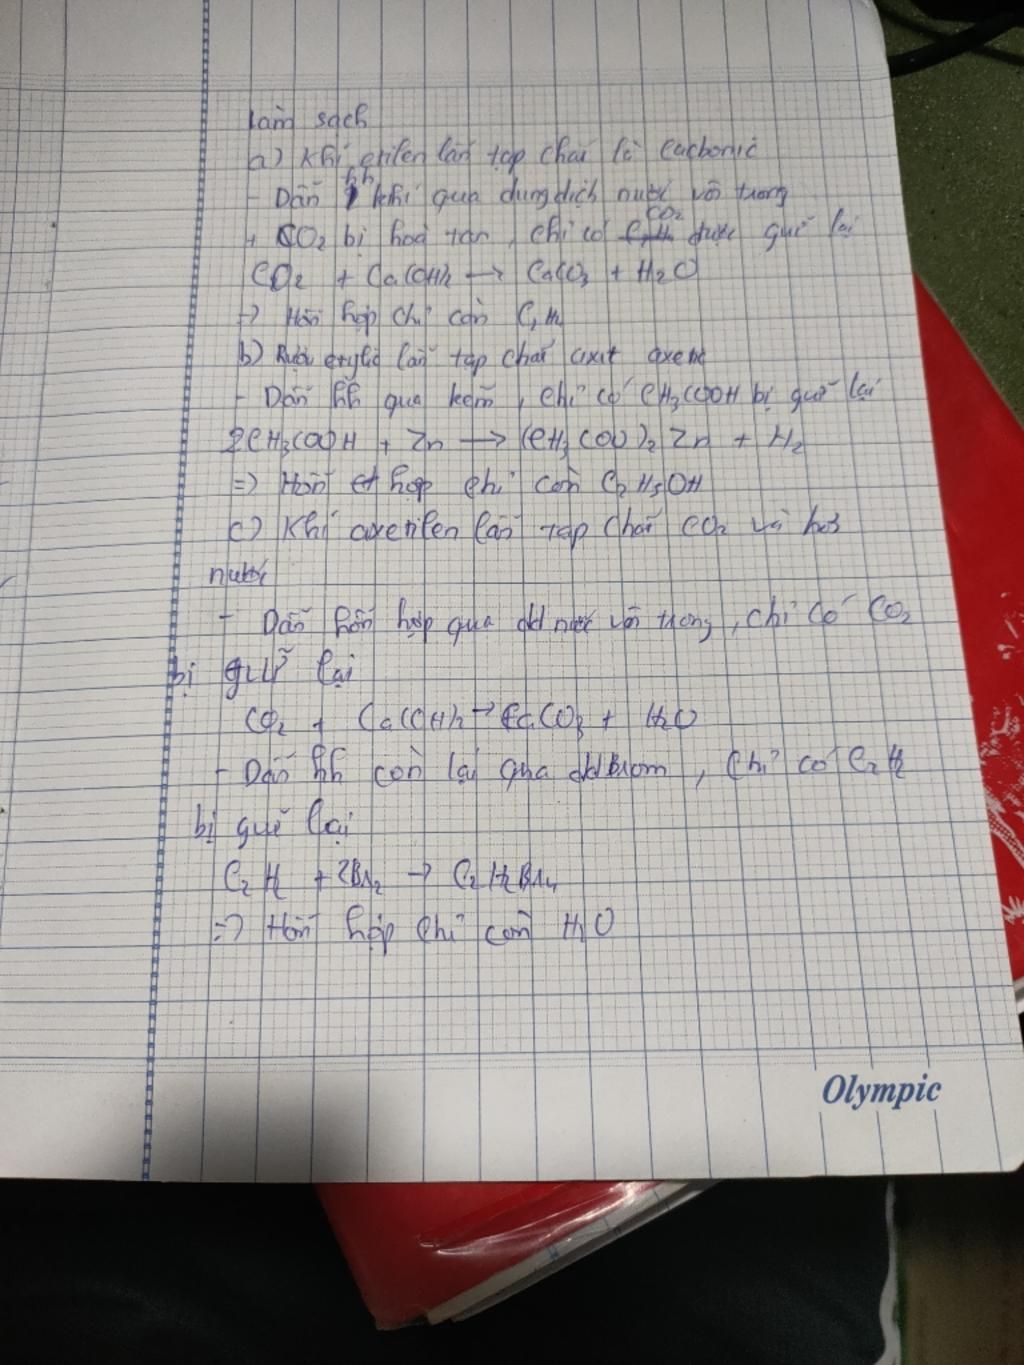 làm sạch
a) Khí etilen lẫn tạp chất là cacbonic
- Dẫn hh khí qua dung dịch nước vôi trong
+ CO2 bị hoà tan, chỉ có CO2 được giữ lại
CO2 + Ca(OH)2 → CaCO3 + H2O
=> Hỗn hợp chỉ còn C2H4
b) Rượu etylic lẫn tạp chất axit axetic
- Dẫn hh qua kẽm, chỉ có CH3COOH bị giữ lại
2CH3COOH + Zn → (CH3COO)2Zn + H2
=> Hỗn hợp chỉ còn C2H5OH
c) Khí axetilen lẫn tạp chất CO2 và hơi
nước
- Dẫn hỗn hợp qua dd nước vôi trong, chỉ có CO2
bị giữ lại
CO2 + Ca(OH)2 → CaCO3 + H2O
- Dẫn hh còn lại qua dd Brom, chỉ có C2H2
bị giữ lại
C2H2 + 2Br2 → C2H2Br4
=> Hỗn hợp chỉ còn H2O
Olympic